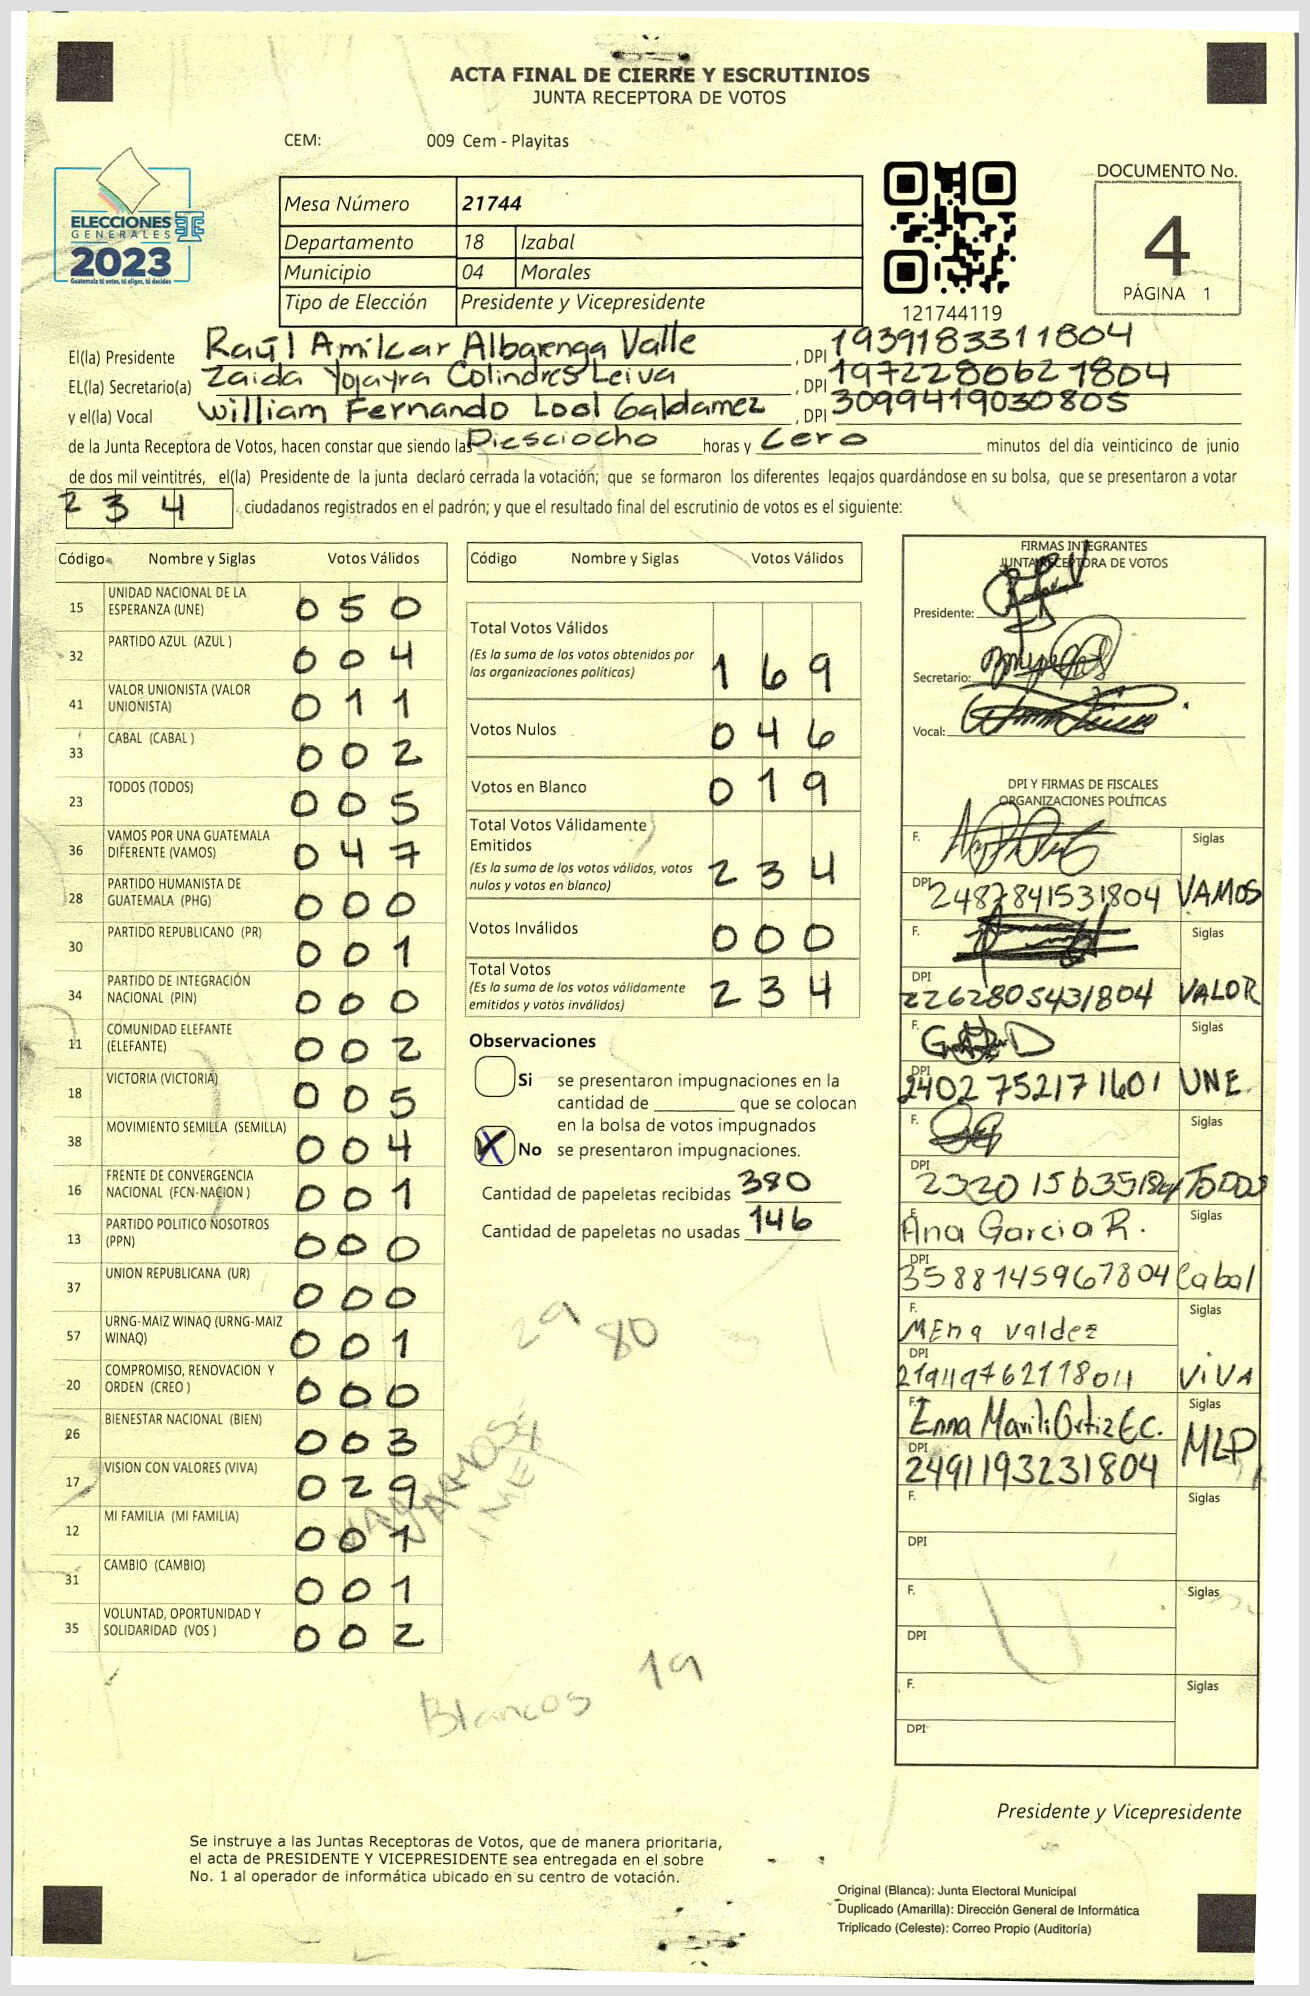 ACTA FINAL DE CIERRE Y ESCRUTINIOS
JUNTA RECEPTORA DE VOTOS
CEM: 009 Cem - Playitas
ELECCIONES
GENERALES
2023
Guatemala tú votas, tú eliges, tú decides
Mesa Número 21744
Departamento 18 Izabal
Municipio 04 Morales
Tipo de Elección Presidente y Vicepresidente
121744119
DOCUMENTO No.
4
PÁGINA 1
El(la) Presidente Raúl Amilcar Albarenga Valle , DPI 1939183311804
EL(la) Secretario(a) Zaida Yojayra Colindres Leiva , DPI 1972280621804
y el(la) Vocal William Fernando Lool Galdamez , DPI 3099419030805
de la Junta Receptora de Votos, hacen constar que siendo las Diesciocho horas y Cero minutos del día veinticinco de junio
de dos mil veintitrés, el(la) Presidente de la junta declaró cerrada la votación; que se formaron los diferentes legajos quardándose en su bolsa, que se presentaron a votar
234 ciudadanos registrados en el padrón; y que el resultado final del escrutinio de votos es el siguiente:
Código Nombre y Siglas Votos Válidos
15 UNIDAD NACIONAL DE LA ESPERANZA (UNE) 050
32 PARTIDO AZUL (AZUL ) 004
41 VALOR UNIONISTA (VALOR UNIONISTA) 011
33 CABAL (CABAL ) 002
23 TODOS (TODOS) 005
36 VAMOS POR UNA GUATEMALA DIFERENTE (VAMOS) 047
28 PARTIDO HUMANISTA DE GUATEMALA (PHG) 000
30 PARTIDO REPUBLICANO (PR) 001
34 PARTIDO DE INTEGRACIÓN NACIONAL (PIN) 000
11 COMUNIDAD ELEFANTE (ELEFANTE) 002
18 VICTORIA (VICTORIA) 005
38 MOVIMIENTO SEMILLA (SEMILLA) 004
16 FRENTE DE CONVERGENCIA NACIONAL (FCN-NACION ) 001
13 PARTIDO POLITICO NOSOTROS (PPN) 000
37 UNION REPUBLICANA (UR) 000
57 URNG-MAIZ WINAQ (URNG-MAIZ WINAQ) 001
20 COMPROMISO, RENOVACION Y ORDEN (CREO ) 000
26 BIENESTAR NACIONAL (BIEN) 003
17 VISION CON VALORES (VIVA) 029
12 MI FAMILIA (MI FAMILIA) 001
31 CAMBIO (CAMBIO) 001
35 VOLUNTAD, OPORTUNIDAD Y SOLIDARIDAD (VOS ) 002
Código Nombre y Siglas Votos Válidos
Total Votos Válidos
(Es la suma de los votos obtenidos por
las organizaciones políticas) 169
Votos Nulos 046
Votos en Blanco 019
Total Votos Válidamente
Emitidos
(Es la suma de los votos válidos, votos
nulos y votos en blanco) 234
Votos Inválidos 000
Total Votos
(Es la suma de los votos válidamente
emitidos y votos inválidos) 234
Observaciones
Si se presentaron impugnaciones en la
cantidad de ________ que se colocan
en la bolsa de votos impugnados
X No se presentaron impugnaciones.
Cantidad de papeletas recibidas 380
Cantidad de papeletas no usadas 146
29 80
VAMOS
Blancos 19
FIRMAS INTEGRANTES
JUNTA RECEPTORA DE VOTOS
Presidente:
Secretario:
Vocal:
DPI Y FIRMAS DE FISCALES
ORGANIZACIONES POLÍTICAS
F. Siglas
DPI 2487841531804 VAMOS
F. Siglas
DPI 2262805431804 VALOR
F. Siglas
DPI 2402752171601 UNE
F. Siglas
DPI TODOS
F. Ana Garcia R. Siglas
DPI 3588745967804 Cabal
F. MEna Valdez Siglas
DPI VIVA
F. Enna Marili Ortiz EC. Siglas
DPI 2491193231804 MLP
F. Siglas
DPI
F. Siglas
DPI
F. Siglas
DPI
Presidente y Vicepresidente
Se instruye a las Juntas Receptoras de Votos, que de manera prioritaria,
el acta de PRESIDENTE Y VICEPRESIDENTE sea entregada en el sobre
No. 1 al operador de informática ubicado en su centro de votación.
Original (Blanca): Junta Electoral Municipal
Duplicado (Amarilla): Dirección General de Informática
Triplicado (Celeste): Correo Propio (Auditoría)